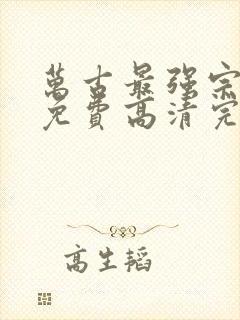 萬古最强宗
免費高清完
高生韜